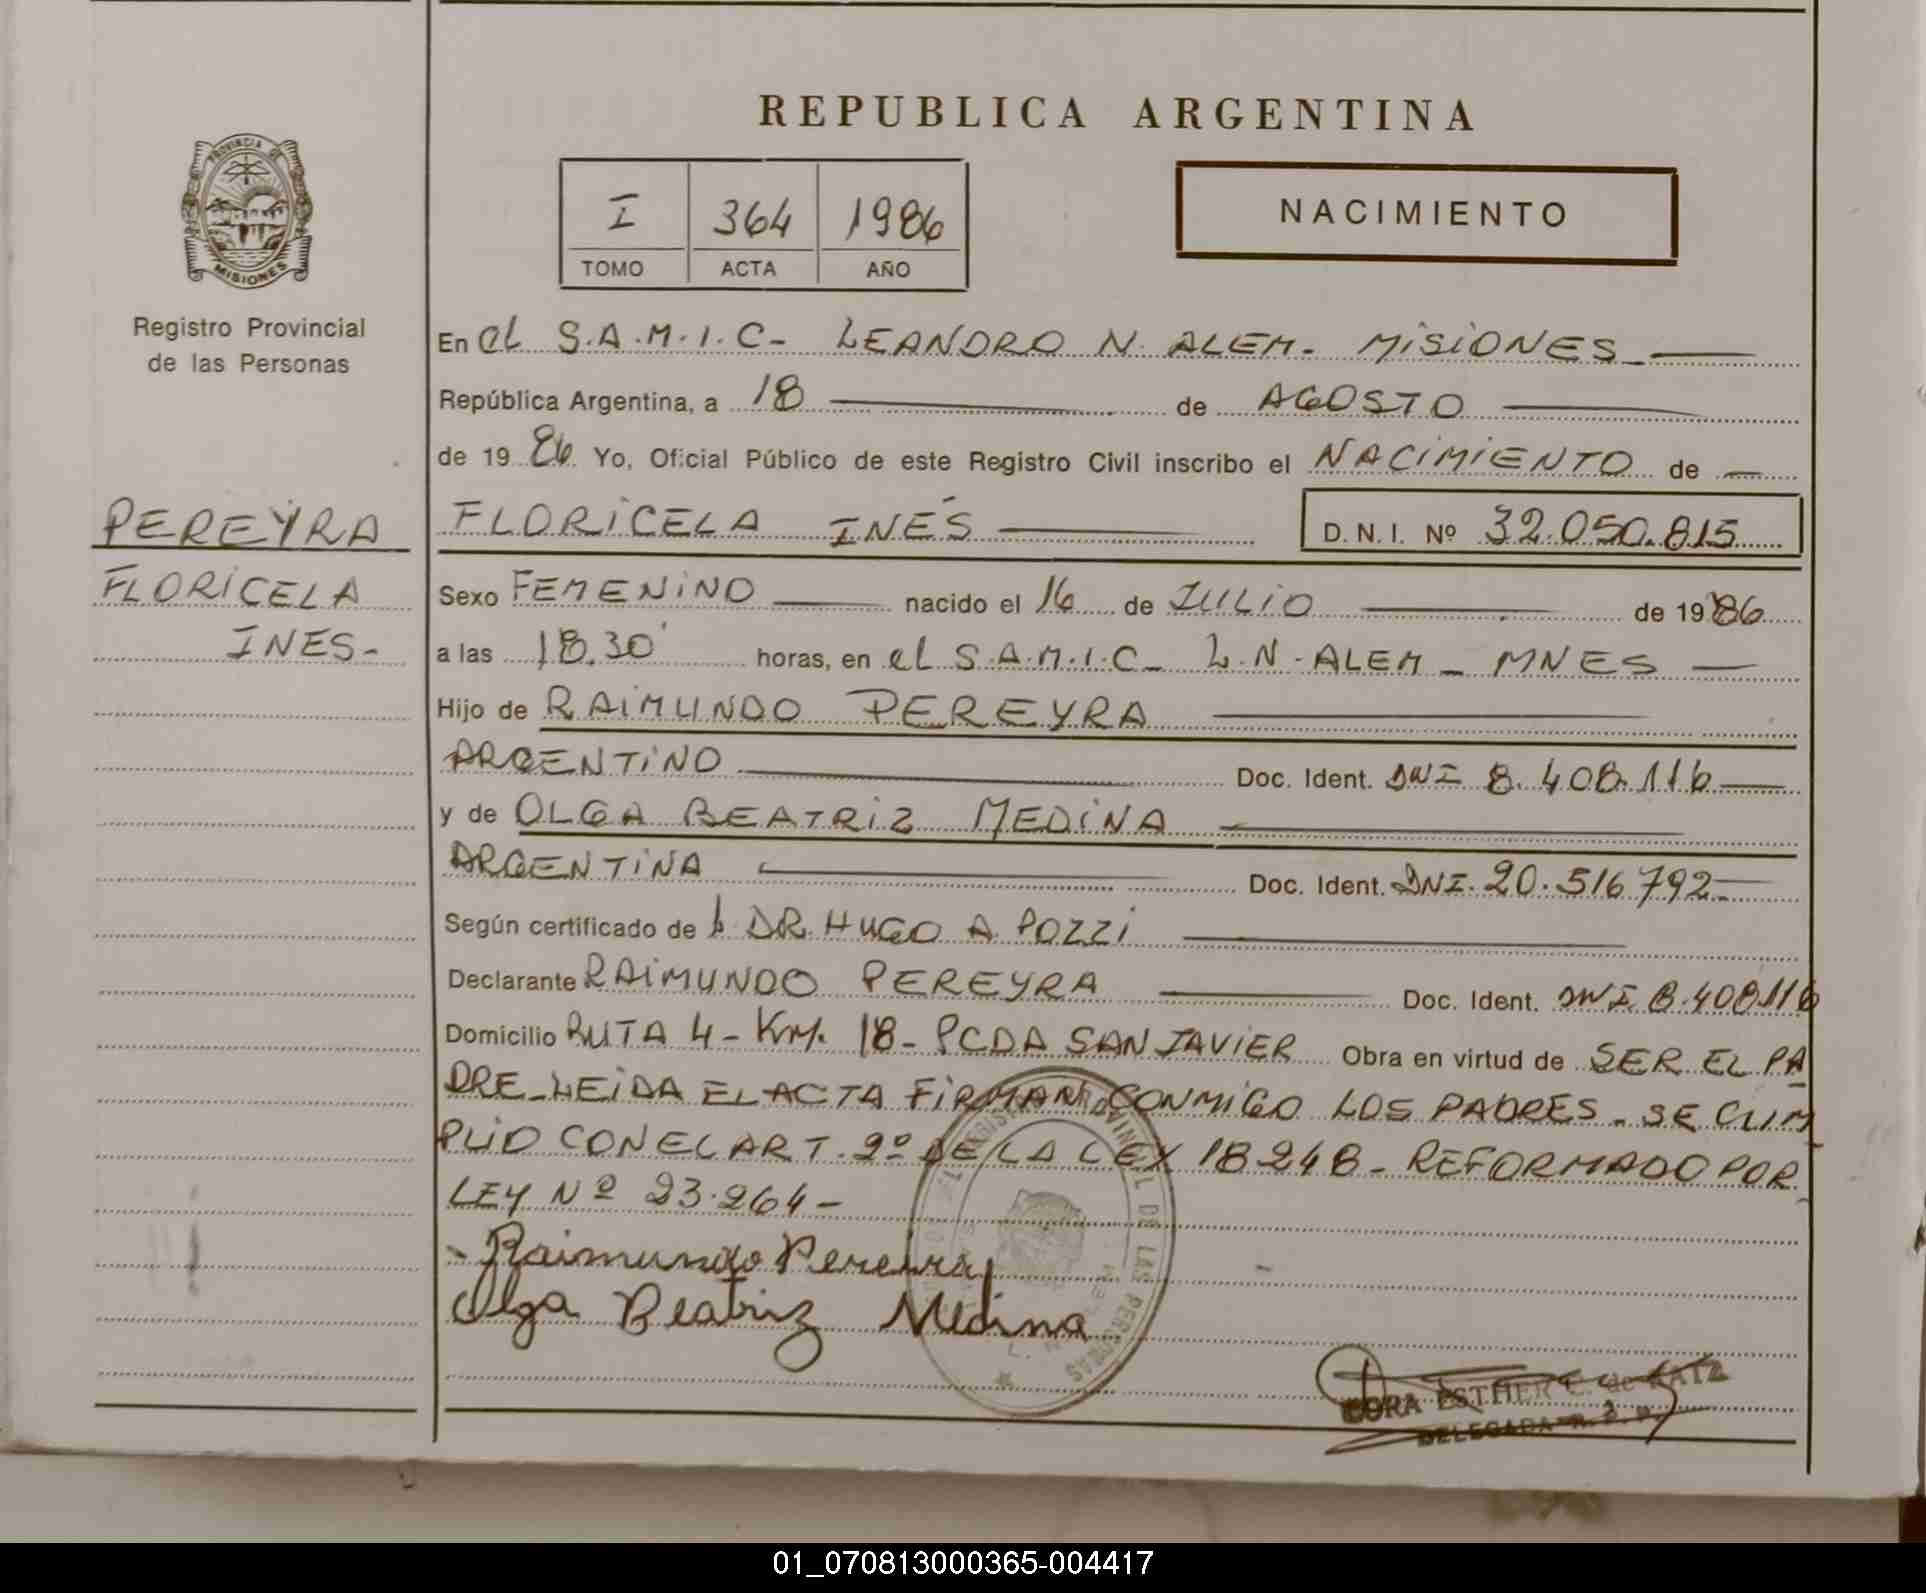 REPUBLICA ARGENTINA
PROVINCIA DE
MISIONES
Registro Provincial
de las Personas
I 364 1986
TOMO ACTA AÑO
NACIMIENTO
En el S.A.M.I.C- LEANDRO N. ALEM- MISIONES
República Argentina, a 18 de AGOSTO
de 19 86 Yo, Oficial Público de este Registro Civil inscribo el NACIMIENTO de
PEREYRA
FLORICELA
INES-
FLORICELA INÉS D. N. I. Nº 32.050.815
Sexo FEMENINO nacido el 16 de JULIO de 1986
a las 18.30' horas, en el S.A.M.I.C- L.N-ALEM- MNES
Hijo de RAIMUNDO PEREYRA
ARGENTINO Doc. Ident. DNI 8.408.116
y de OLGA BEATRIZ MEDINA
ARGENTINA Doc. Ident. DNI. 20.516.792-
Según certificado de DR. HUGO A. POZZI
Declarante RAIMUNDO PEREYRA Doc. Ident. DNI 8.408.116
Domicilio RUTA 4- KM. 18- PCDA SAN JAVIER Obra en virtud de SER EL PA
DRE-LEIDA EL ACTA FIRMAN CONMIGO LOS PADRES-SE CUM
PLIO CON EL ART. 2º DE LA LEY 18248- REFORMADO POR
LEY Nº 23.264-
Raimundo Pereira
Olga Beatriz Medina
DE LAS PERSONAS
L. N. ALEM
DORA ESTHER E. de KATZ
DELEGADA R. P. P.
01_070813000365-004417